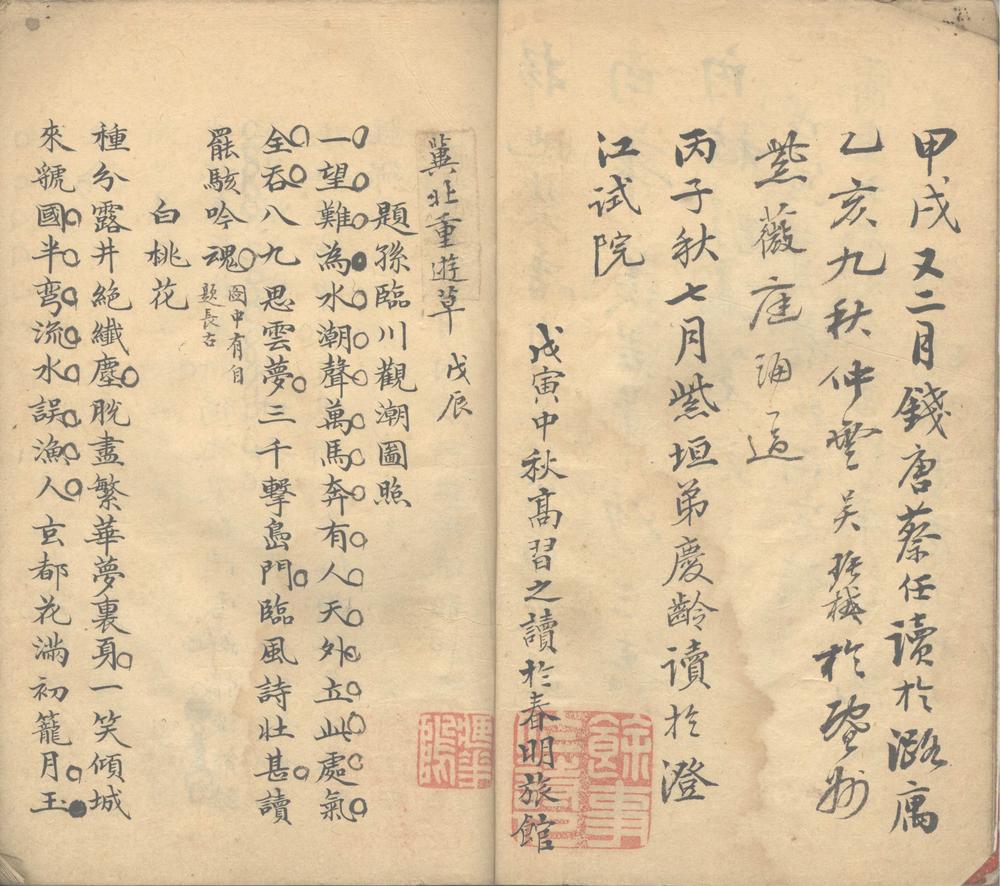 甲戌又二月錢唐蔡任讀於潞寓
乙亥九秋仲雲吳振棫於登州
紫薇庭誦過
丙子秋七月紫垣弟慶齡讀於澄
江試院
戊寅中秋高習之讀於春明旅館
冀北重遊草 戊辰
題孫臨川觀潮圖照
一望難為水潮聲萬馬奔有人天外立此處氣
全吞八九思雲夢三千擊島門臨風詩壯甚讀
罷駭吟魂 圖中有自題長古
白桃花
種分露井絕纖塵脫盡繁華夢裏身一笑傾城
來虢國半彎流水誤漁人玄都花滿初籠月玉